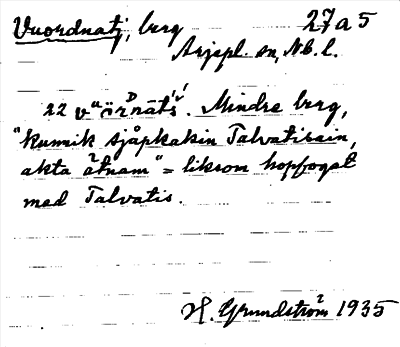 Vuordnatj, berg 27a5
Arjepl. sn, N.B.l.
22 vᵘörᴰnātś'. Mindre berg,
"kunnik sjåpkakin Talvatisain,
akta ätnam" = liksom hopfogat
med Talvatis.
H. Grundström 1935